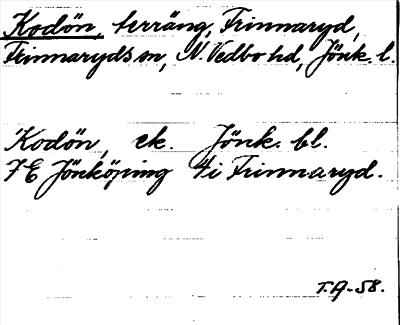 Kodön, terräng, Frinnaryd,
Frinnaryds sn, N. Vedbo hd, Jönk. l.
Kodön, ek. Jönk. bl.
7E Jönköping 4i Frinnaryd.
T.A-58.